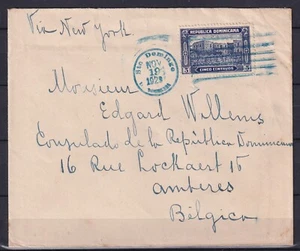 Via New York
REPUBLICA DOMINICANA
5 CINCO CENTAVOS 5
Sto Domingo
NOV
19
Monsieur
Edgard Willems
Consulado de la República Dominicana
16 Rue Lockaert 15
Amberes
Bélgica